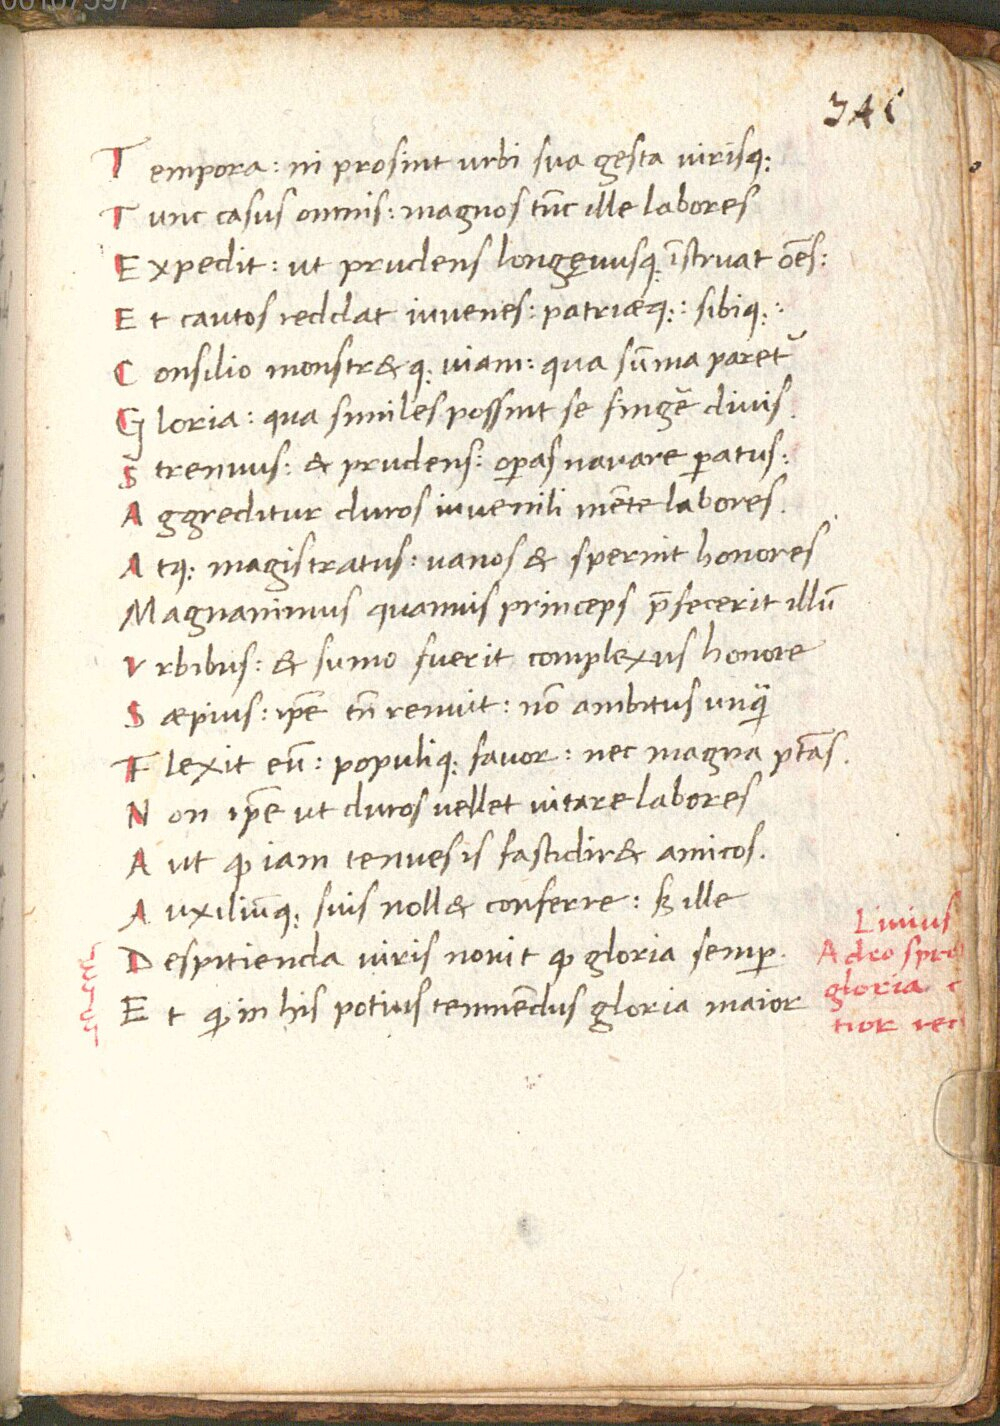 T empora: ni prosint urbi sua gesta uirisq;
T unc casus omnis: magnos tūc ille labores
E xpedit: ut prudens longęuusq; īstruat oēs:
E t cautos reddat iuuenes: patriæq;: sibiq;:
C onsilio monstr&q; uiam: qua sūma paret̄
G loria: qua similes possint se fingē diuis.
S trenuus: & prudens: op̄as nauare p̄atus:
A ggreditur duros iuuenili mēte labores.
A tq; magistratus: uanos & spernit honores
M agnanimus quamuis princeps p̄fecerit illū
V rbibus: & sumo fuerit complexus honore
S æpius: ip̄e tn̄ renuit: nō ambitus unq̄
F lexit eū: populiq; fauor: nec magna ptās.
N on ip̄e ut duros uellet uitare labores
A ut ꝙ iam tenues is fastidir& amicos.
A uxiliūq; suis noll& conferre: sꝫ ille
D espitienda uiris nouit ꝙ gloria semꝑ.
E t ꝙ in his potius temnēdus gloria maior
Liuius
Adeo spre
gloria
tior re